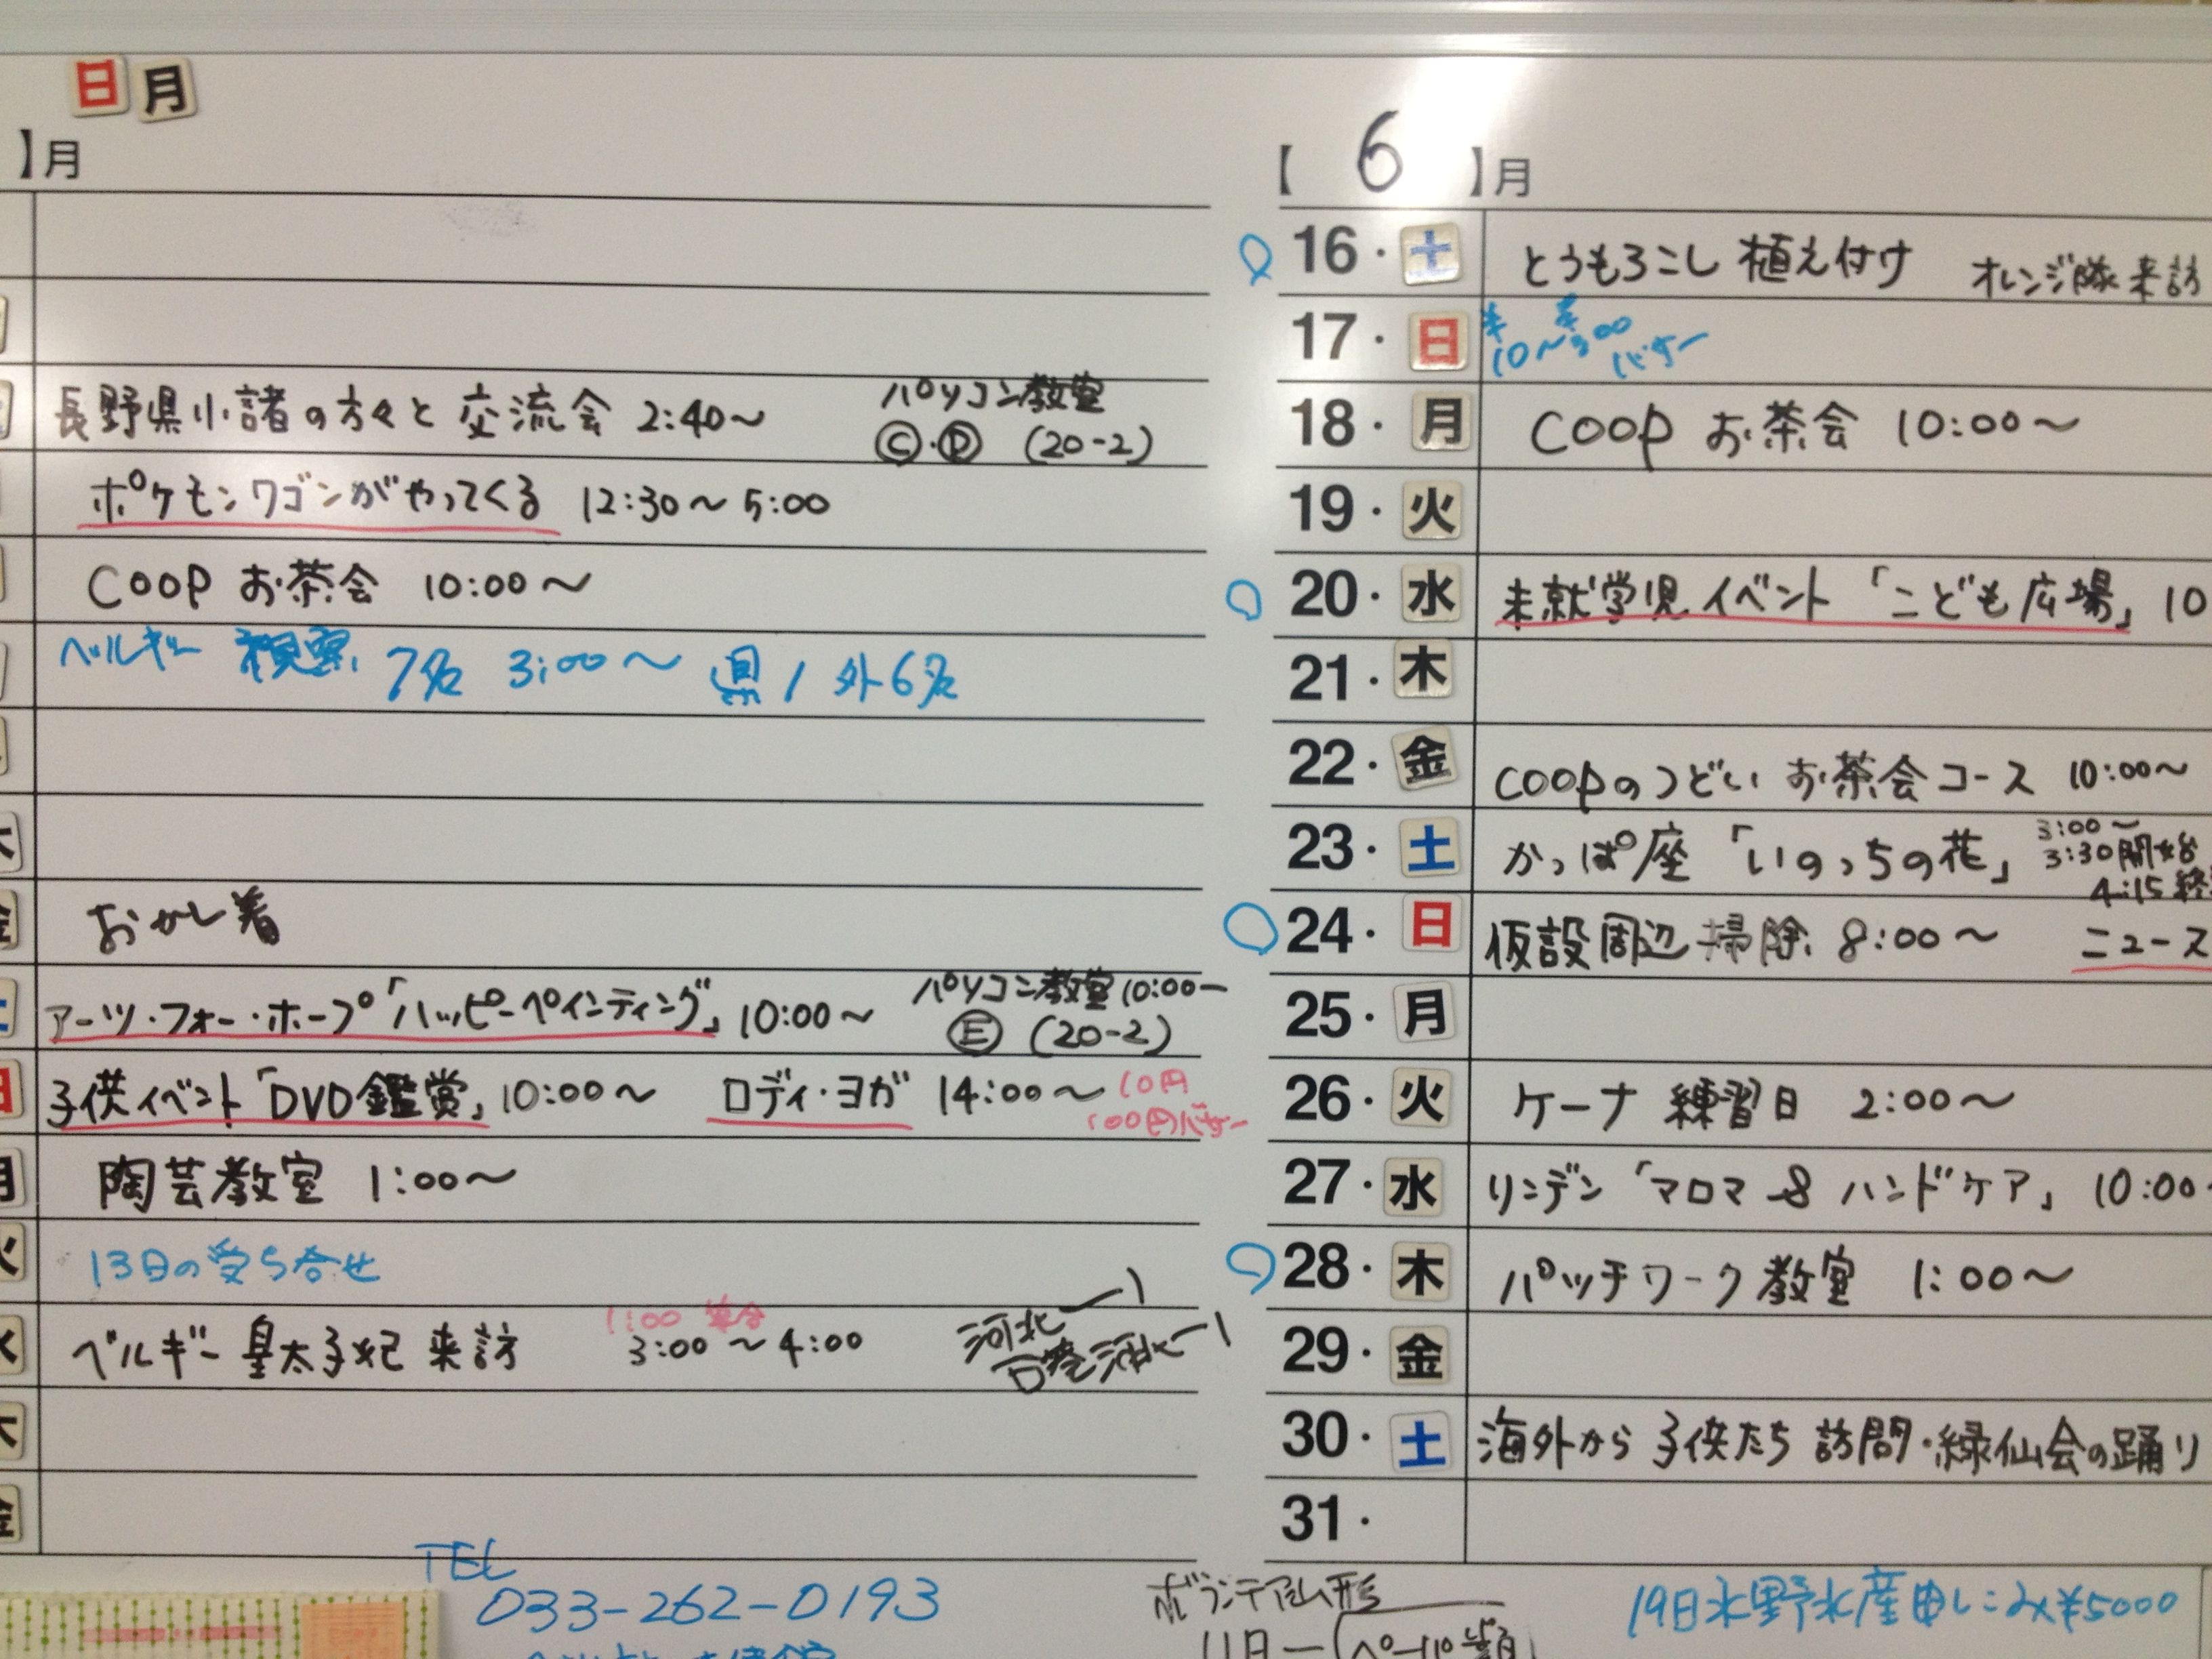 日 月
】月
長野県小諸の方々と交流会 2:40〜 パソコン教室
Ⓒ・Ⓓ (20-2)
ポケモンワゴンがやってくる 12:30〜5:00
COOP お茶会 10:00〜
ベルギー 視察 7名 3:00〜 県1 外6名
おかし着
アーツ・フォー・ホープ「ハッピーペインティング」 10:00〜 パソコン教室 10:00〜
Ⓔ (20-2)
子供イベント「DVD鑑賞」 10:00〜 ロディ・ヨガ 14:00〜 10円
100円バザー
陶芸教室 1:00〜
13日の受ち合せ
1:00 集合
ベルギー皇太子妃 来訪 3:00〜4:00 河北
石巻河北
TEL
033-262-0193
【 6 】月
16・土 とうもろこし 植え付け オレンジ隊 来訪
17・日 10〜3:00 バザー
18・月 COOP お茶会 10:00〜
19・火
20・水 未就学児 イベント「こども広場」 10
21・木
22・金 COOPのつどい お茶会コース 10:00〜
23・土 かっぱ座「いのっちの花」 3:00〜
3:30開始
4:15
24・日 仮設周辺 掃除 8:00〜 ニュース
25・月
26・火 ケーナ 練習日 2:00〜
27・水 リンデン「マロマ & ハンドケア」 10:00
28・木 パッチワーク教室 1:00〜
29・金
30・土 海外から 子供たち 訪問・緑仙会の踊り
31・
11日
19日 水野水産申しこみ ¥5000